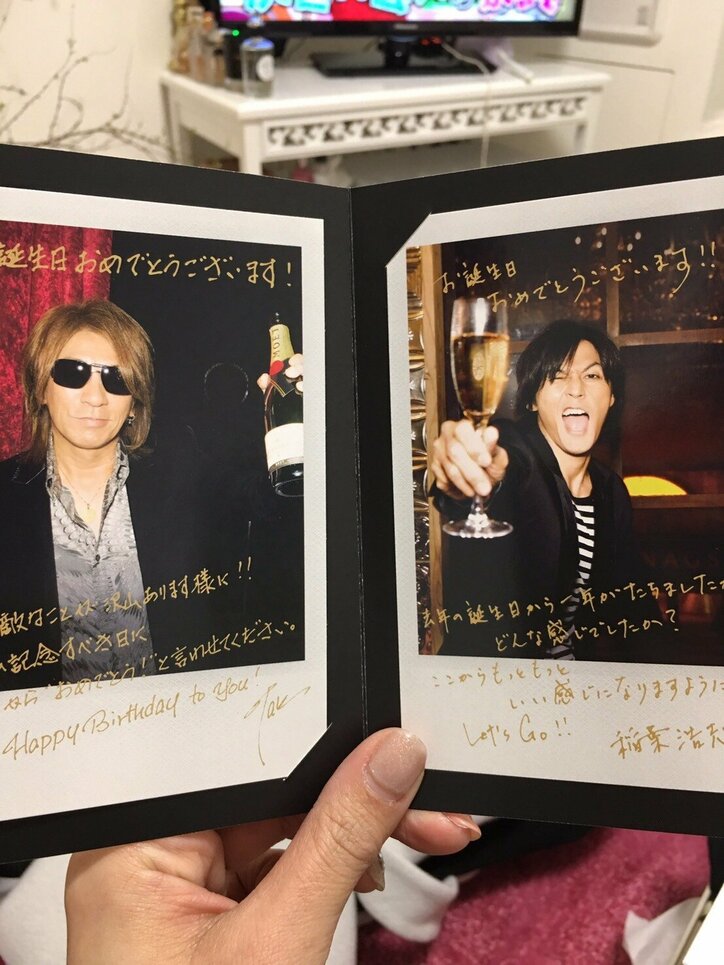 誕生日おめでとうございます!
MOËT
敵なことが沢山あります様に!!
記念すべき日に
から"おめでとう!"と言わせてください。
Happy Birthday to You!
Tak
お誕生日
おめでとうございます!!
去年の誕生日から一年がたちました
どんな感じでしたか?
ここからもっともっと
いい感じになりますように
Let's Go!!
稲葉浩志